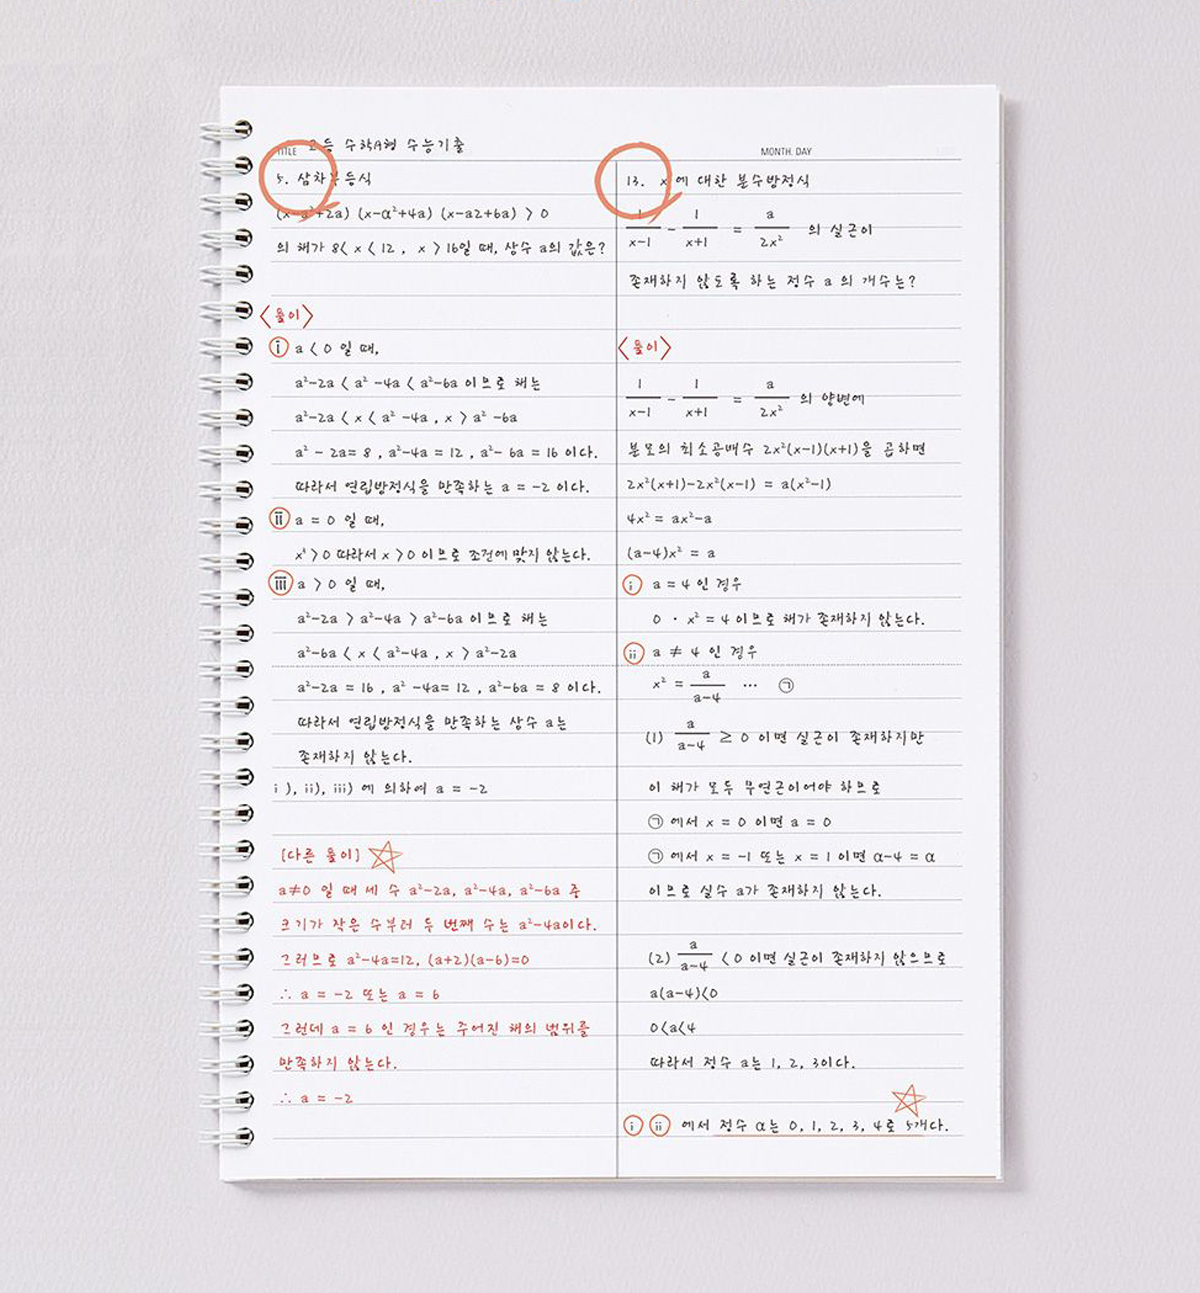 TITLE 고등 수학A형 수능기출
MONTH. DAY
5. 삼차부등식
(x-a²+2a) (x-α²+4a) (x-a2+6a) > 0
의 해가 8< x < 12 , x > 16일 때, 상수 a의 값은?
<풀이>
ⅰ a < 0 일 때,
a²-2a < a² -4a < a²-6a 이므로 해는
a²-2a < x < a² -4a , x > a² -6a
a² - 2a= 8 , a²-4a = 12 , a²- 6a = 16 이다.
따라서 연립방정식을 만족하는 a = -2 이다.
ⅱ a = 0 일 때,
x³ >0 따라서 x > 0 이므로 조건에 맞지 않는다.
ⅲ a > 0 일 때,
a²-2a > a²-4a > a²-6a 이므로 해는
a²-6a < x < a²-4a , x > a²-2a
a²-2a = 16 , a² -4a= 12 , a²-6a = 8 이다.
따라서 연립방정식을 만족하는 상수 a는
존재하지 않는다.
i ), ii), iii) 에 의하여 a = -2
[다른 풀이]
a≠0 일 때 세 수 a²-2a, a²-4a, a²-6a 중
크기가 작은 수부터 두 번째 수는 a²-4a이다.
그러므로 a²-4a=12, (a+2)(a-6)=0
∴ a = -2 또는 a = 6
그런데 a = 6 인 경우는 주어진 해의 범위를
만족하지 않는다.
∴ a = -2
13. x 에 대한 분수방정식
1/x-1 - 1/x+1 = a/2x² 의 실근이
존재하지 않도록 하는 정수 a 의 개수는?
<풀이>
1/x-1 - 1/x+1 = a/2x² 의 양변에
분모의 최소공배수 2x²(x-1)(x+1)을 곱하면
2x²(x+1)-2x²(x-1) = a(x²-1)
4x² = ax²-a
(a-4)x² = a
ⅰ a = 4 인 경우
0 · x² = 4 이므로 해가 존재하지 않는다.
ⅱ a ≠ 4 인 경우
x² = a/a-4 … ㉠
(1) a/a-4 ≥ 0 이면 실근이 존재하지만
이 해가 모두 무연근이어야 하므로
㉠ 에서 x = 0 이면 a = 0
㉠ 에서 x = -1 또는 x = 1 이면 α-4 = α
이므로 실수 a가 존재하지 않는다.
(2) a/a-4 < 0 이면 실근이 존재하지 않으므로
a(a-4)<0
0<a<4
따라서 정수 a는 1, 2, 3이다.
ⅰ ⅱ 에서 정수 α는 0, 1, 2, 3, 4로 5개다.